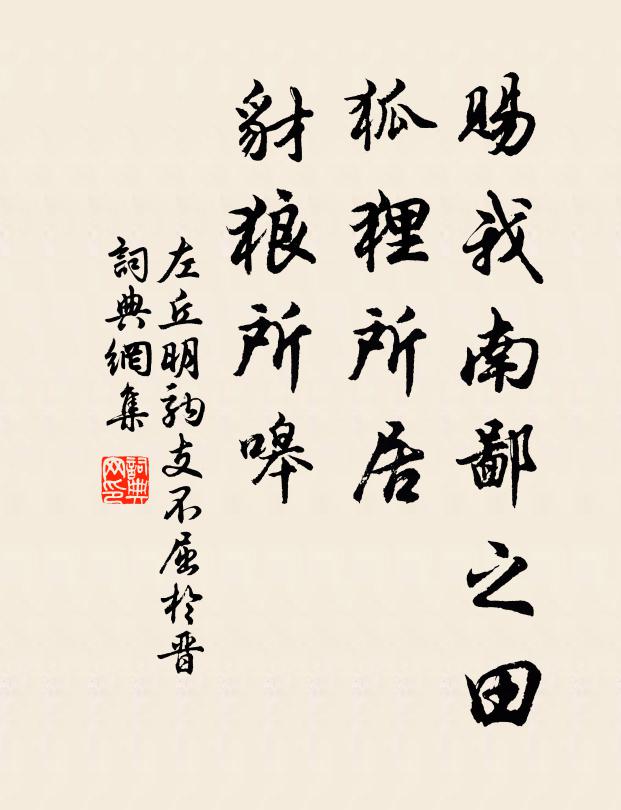 賜我南鄙之田
狐狸所居
豺狼所嗥
左丘明駒支不屈於晉
詞典網集
詞典網印